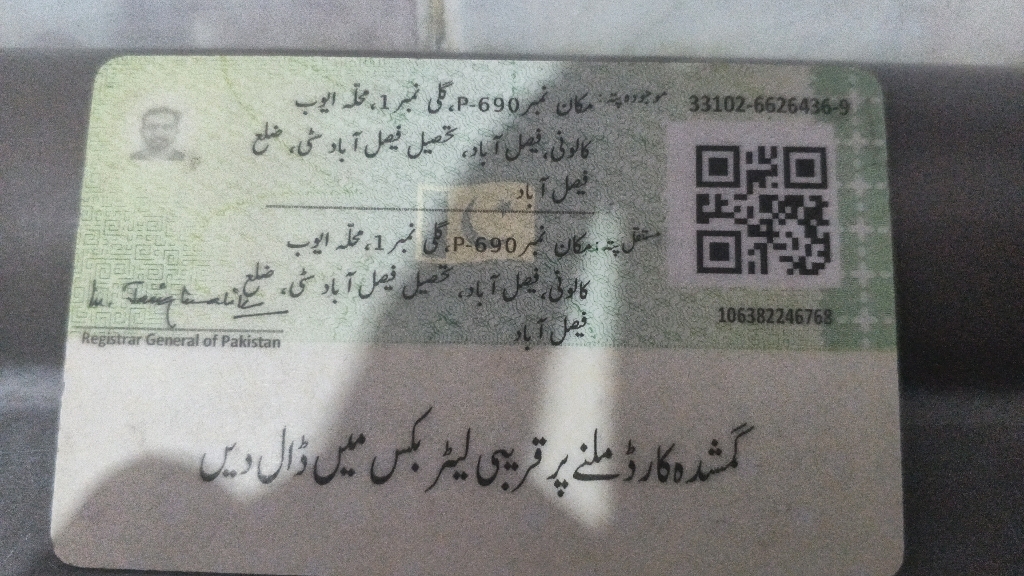 33102-6626436-9
موجودہ پتہ: مکان نمبر P-690، گلی نمبر 1، محلّہ ایوب
کالونی، فیصل آباد، تحصیل فیصل آباد سٹی، ضلع
فیصل آباد
مستقل پتہ: مکان نمبر P-690، گلی نمبر 1، محلّہ ایوب
کالونی، فیصل آباد، تحصیل فیصل آباد سٹی، ضلع
فیصل آباد
106382246768
Registrar General of Pakistan
گمشدہ کارڈ ملنے پر قریبی لیٹر بکس میں ڈال دیں